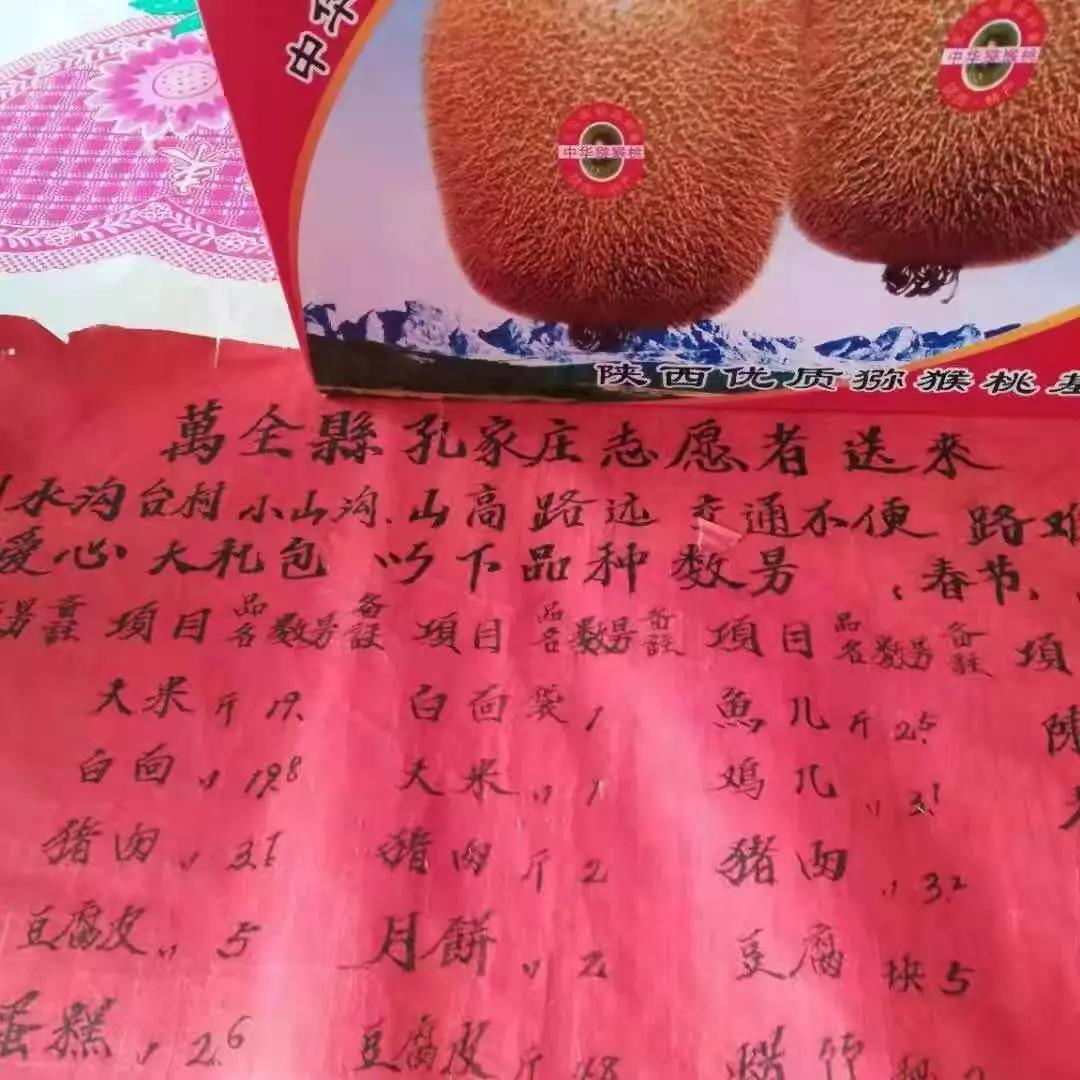 中华
中华猕猴桃
中华猕猴桃
陕西优质猕猴桃基
萬全縣孔家庄志愿者送來
水沟台村小山沟.山高路远 交通不便 路难
爱心大礼包 以下品种数另 、春节、
另备註 項目 品名 数另 备註 項目 品名 数另 备註 項目 品名 数另 备註 項
大米 斤 19. 白面 袋 1 魚儿 斤 2.5
白面 〃 19.8 大米 〃 1 鸡儿 〃 3.1
猪肉 〃 猪肉 斤 2 猪肉 〃 3.2
豆腐皮 〃 5 月餅 〃 2 豆腐 块 5
蛋糕 〃 2.6 豆腐皮 斤